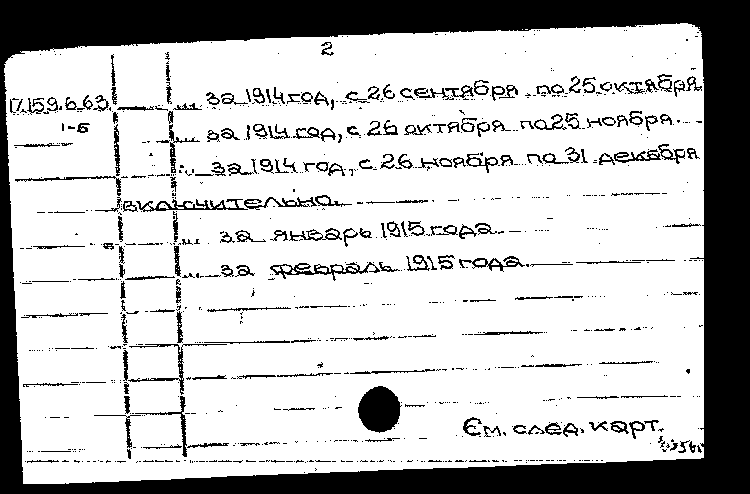 2
17.159.6.63 ... за 1914 год, с 26 сентября по 25 октября
1-5 ... за 1914 год, с 26 октября по 25 ноября.
... за 1914 год, с 26 ноября по 31 декабря
включительно.
... за январь 1915 года.
... за февраль 1915 года.
См. след. карт.